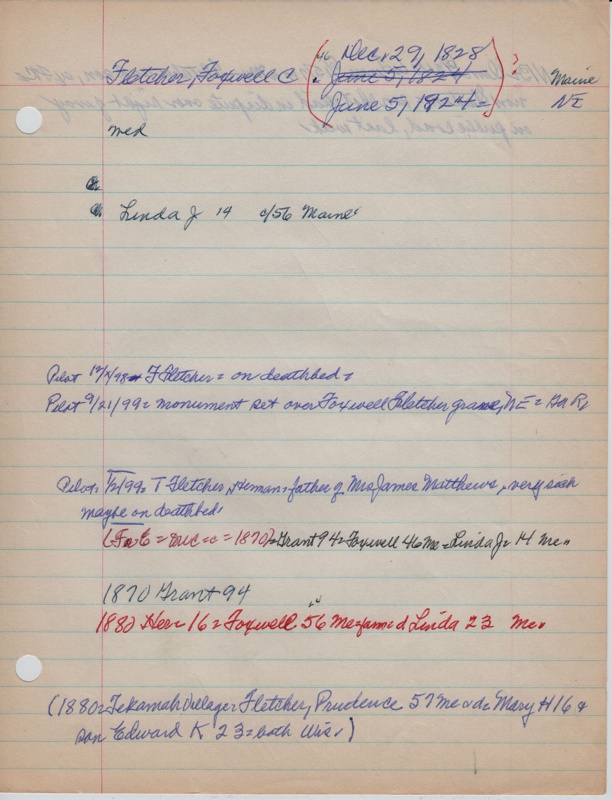 Dec. 29, 1828
Fletcher, Foxwell C June 5, 1824 ? Maine
June 5, 1924 = NE
med
Linda J 14 c/56 Maine
Pilot F Fletcher = on deathbed =
Pilot 9/21/99 = monument set over Foxwell Fletcher grave, NE = GAR,
Pilot = 1/2/99 = T Fletcher, Herman = father of Mrs James Matthews, very sick
maybe on deathbed
= 1870) = Grant 94 = Foxwell 46 Me = Linda J = 14 Me
1870 Grant 94
1880 Her = 16 = Foxwell 56 Me = d Linda 23 Me
(1880 = Tekamah Village = Fletcher, Prudence 57 Me = da Mary H 16 &
son Edward K 23 = both Wis.)